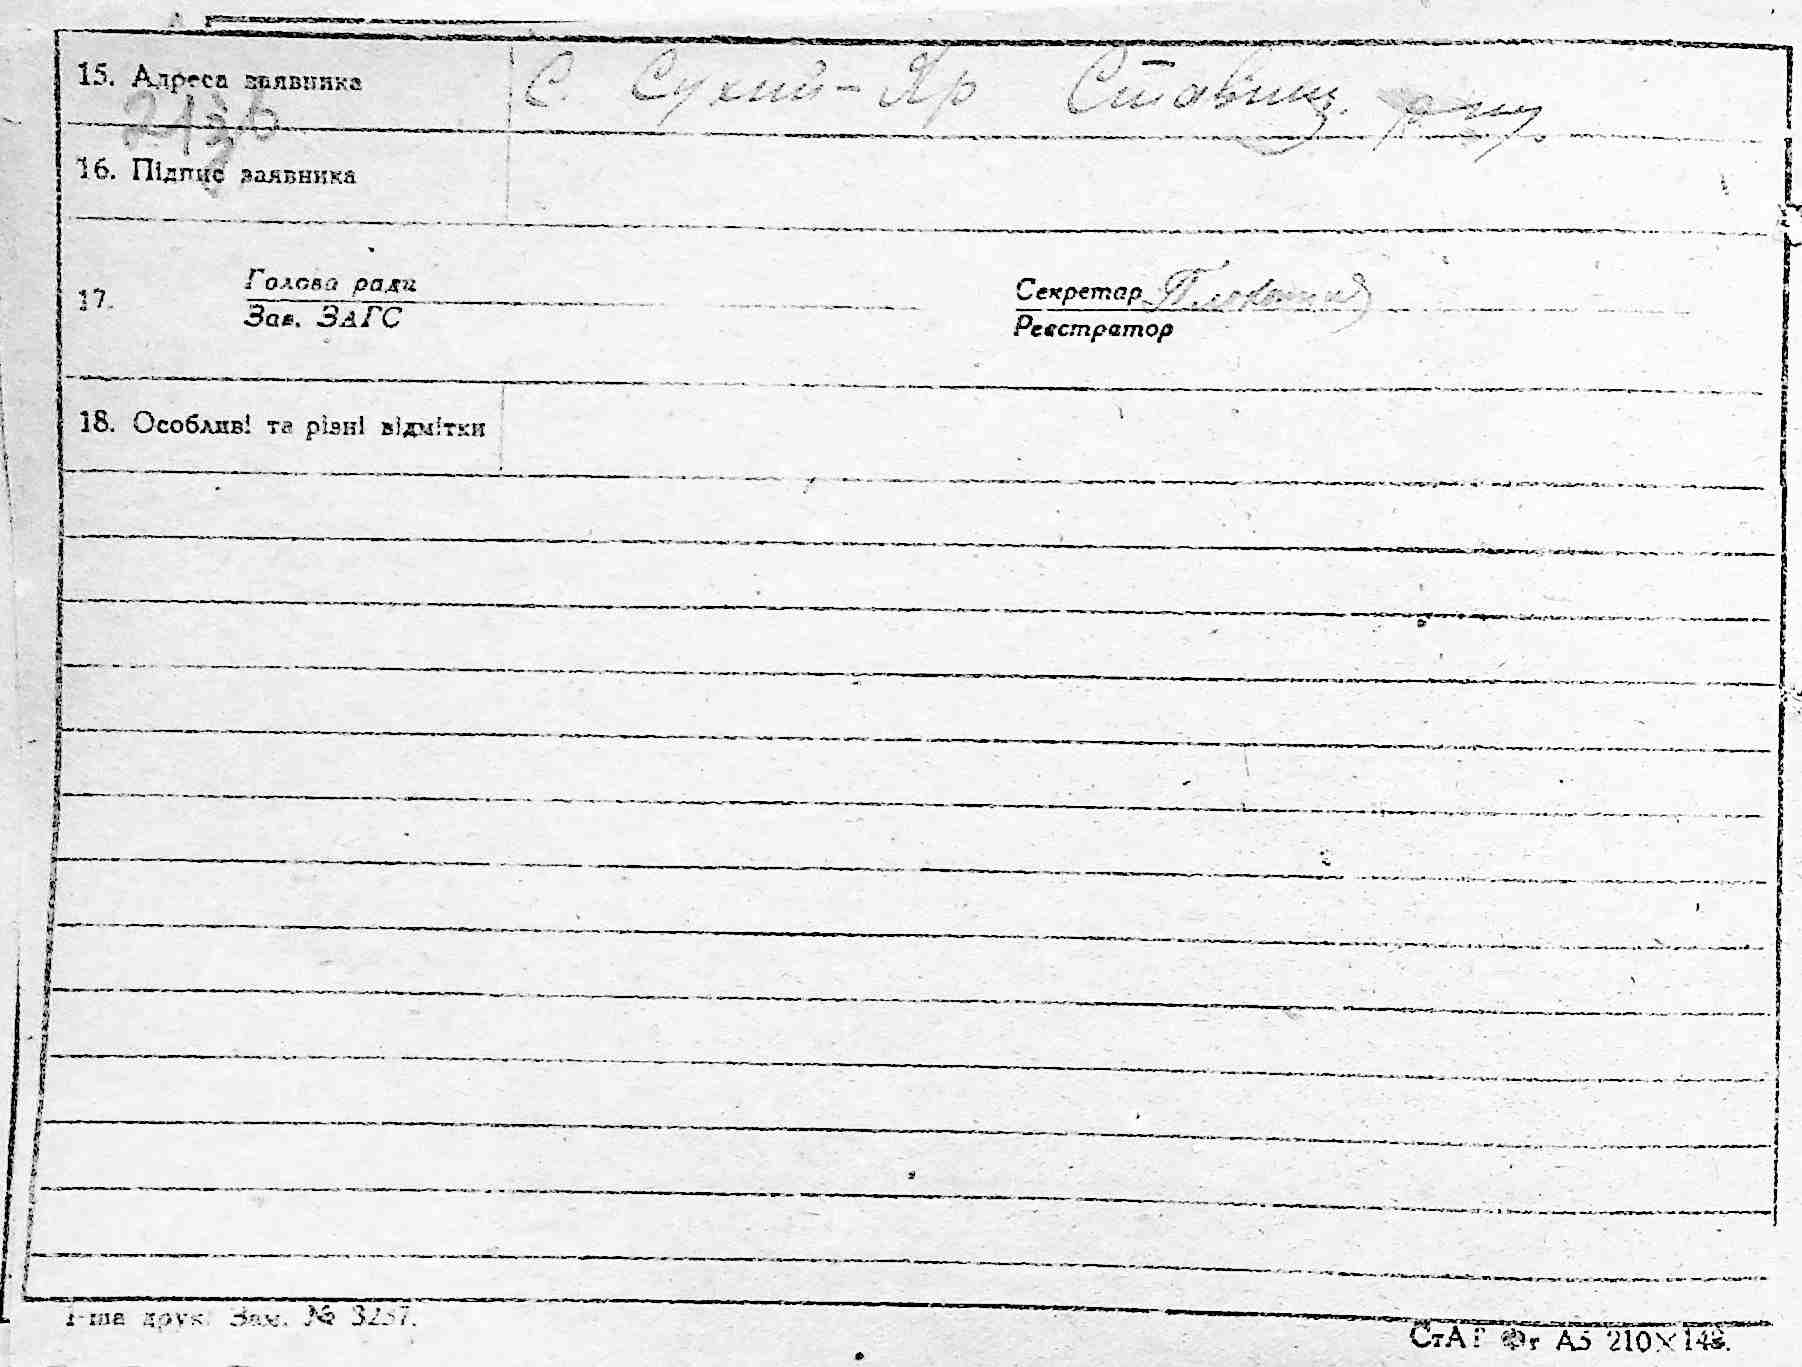 15. Адреса заявника С. Сухий-Яр Ставищ.
16. Підпис заявника
17. Голова ради Секретар
Зав. ЗАГС Реєстратор
18. Особливі та різні відмітки
1-ша друк. Зам. № 3257.
СтАТ Фт А5 210×148.